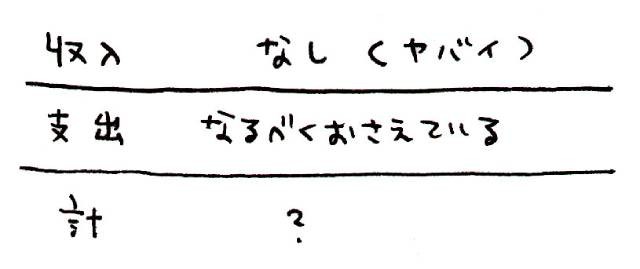 収入 なし(ヤバイ)
支出 なるべくおさえている
計 ?